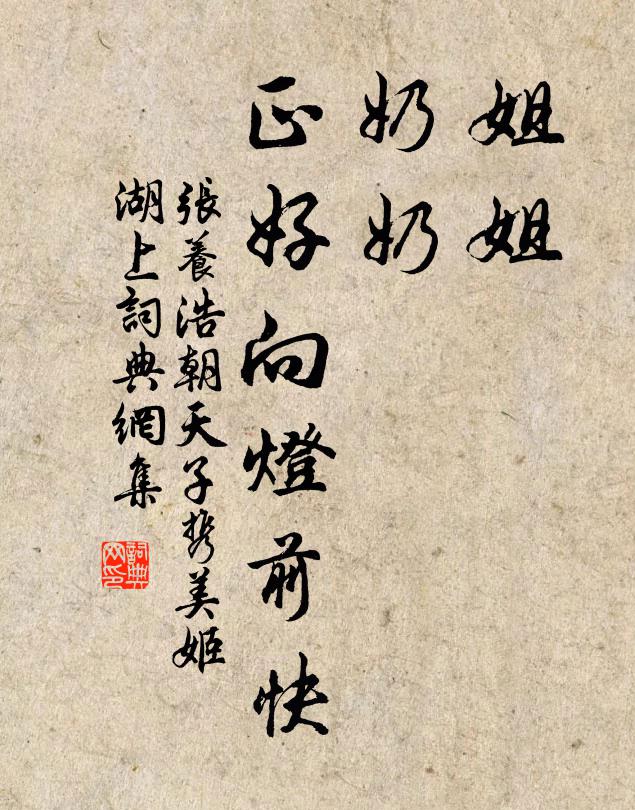 姐姐
奶奶
正好向燈前快
張養浩朝天子携美姬
湖上詞典網集
詞典
网印